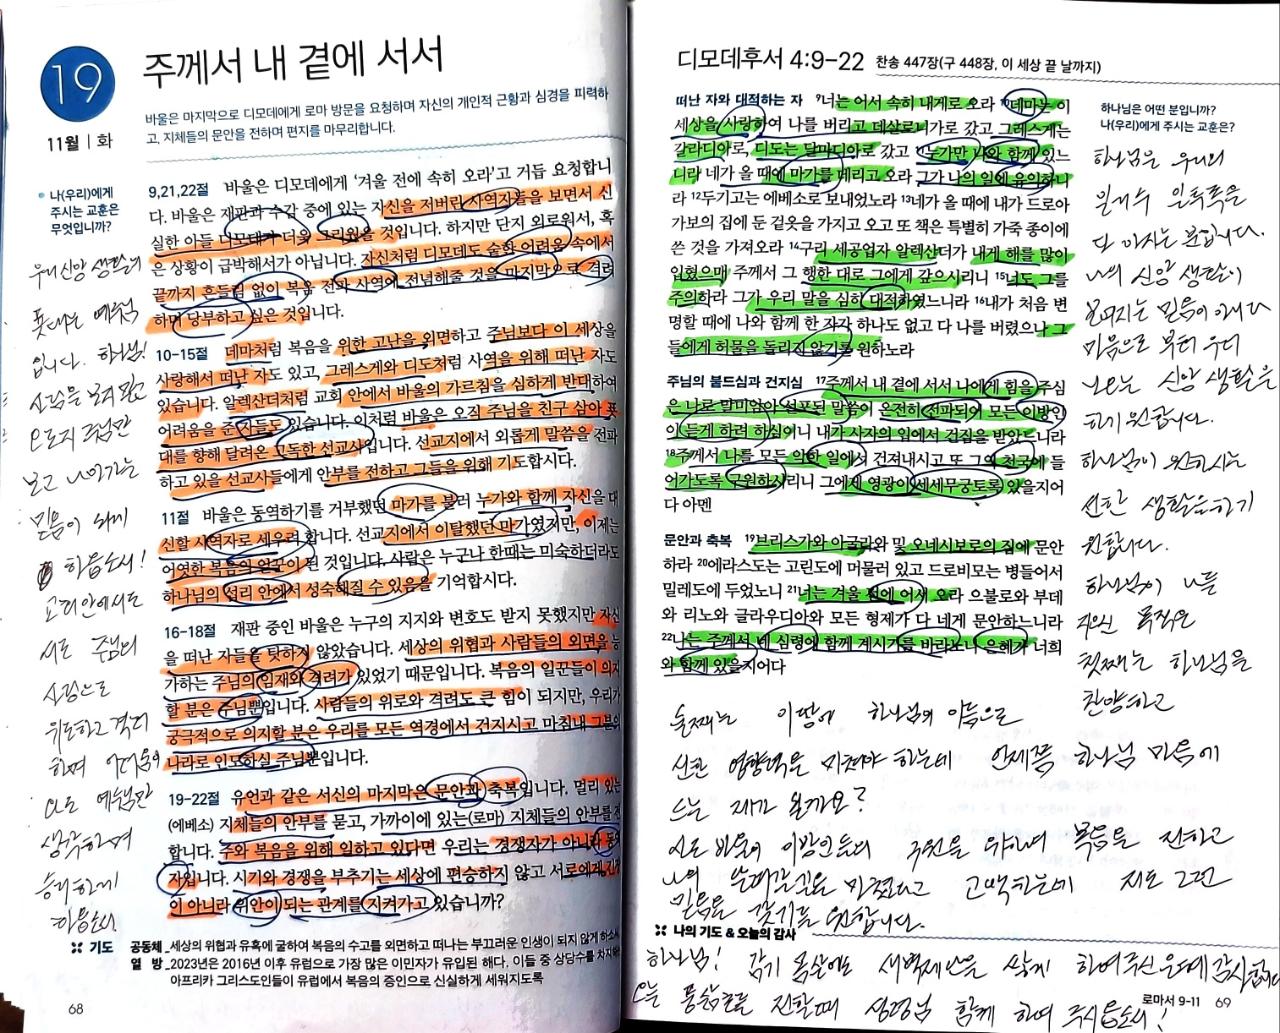 19
11월 | 화
주께서 내 곁에 서서
바울은 마지막으로 디모데에게 로마 방문을 요청하며 자신의 개인적 근황과 심경을 피력하
고, 지체들의 문안을 전하며 편지를 마무리합니다.
나(우리)에게
주시는 교훈은
무엇입니까?
9,21,22절 바울은 디모데에게 '겨울 전에 속히 오라'고 거듭 요청합니
다. 바울은 재판과 수감 중에 있는 자신을 저버린 사역자들을 보면서 신
실한 아들 디모데가 더욱 그리웠을 것입니다. 하지만 단지 외로워서, 혹
은 상황이 급박해서가 아닙니다. 자신처럼 디모데도 숱한 어려움 속에서
끝까지 흔들림 없이 복음 전파 사역에 전념해줄 것을 마지막으로 격려
하며 당부하고 싶은 것입니다.
10-15절 데마처럼 복음을 위한 고난을 외면하고 주님보다 이 세상을
사랑해서 떠난 자도 있고, 그레스게와 디도처럼 사역을 위해 떠난 자도
있습니다. 알렉산더처럼 교회 안에서 바울의 가르침을 심하게 반대하여
어려움을 준 자들도 있습니다. 이처럼 바울은 오직 주님을 친구 삼아 푯
대를 향해 달려온 고독한 선교사입니다. 선교지에서 외롭게 말씀을 전파
하고 있을 선교사들에게 안부를 전하고 그들을 위해 기도합시다.
11절 바울은 동역하기를 거부했던 마가를 불러 누가와 함께 자신을 대
신할 사역자로 세우려 합니다. 선교지에서 이탈했던 마가였지만, 이제는
어엿한 복음의 일꾼이 된 것입니다. 사람은 누구나 한때는 미숙하더라도
하나님의 섭리 안에서 성숙해질 수 있음을 기억합시다.
16-18절 재판 중인 바울은 누구의 지지와 변호도 받지 못했지만 자신
을 떠난 자들을 탓하지 않았습니다. 세상의 위협과 사람들의 외면을 능
가하는 주님의 임재와 격려가 있었기 때문입니다. 복음의 일꾼들이 의지
할 분은 주님뿐입니다. 사람들의 위로와 격려도 큰 힘이 되지만, 우리가
궁극적으로 의지할 분은 우리를 모든 역경에서 건지시고 마침내 그분의
나라로 인도하실 주님뿐입니다.
19-22절 유언과 같은 서신의 마지막은 문안과 축복입니다. 멀리 있는
(에베소) 지체들의 안부를 묻고, 가까이에 있는(로마) 지체들의 안부를 전
합니다. 주와 복음을 위해 일하고 있다면 우리는 경쟁자가 아니라 동역
자입니다. 시기와 경쟁을 부추기는 세상에 편승하지 않고 서로에게
인 아니라 위안이 되는 관계를 지켜가고 있습니까?
우리 신앙 생활의
푯대는 예수님
입니다. 하나님!
오로지 주님만
보고 나아가는
믿음이 되게
하옵소서!
교회안에서도
서로 주님의
사랑으로
위로하고 격려
하며 어려움이
와도 예수님만
생각하며
승리하게
하옵소서.
기도 공동체_세상의 위협과 유혹에 굴하여 복음의 수고를 외면하고 떠나는 부끄러운 인생이 되지 않게 하소서.
열 방_2023년은 2016년 이후 유럽으로 가장 많은 이민자가 유입된 해다. 이들 중 상당수를 차지하는
아프리카 그리스도인들이 유럽에서 복음의 증인으로 신실하게 세워지도록
68
디모데후서 4:9-22 찬송 447장(구 448장, 이 세상 끝 날까지)
떠난 자와 대적하는 자 9너는 어서 속히 내게로 오라 10데마는 이
세상을 사랑하여 나를 버리고 데살로니가로 갔고 그레스게는
갈라디아로, 디도는 달마디아로 갔고 11누가만 나와 함께 있느
니라 네가 올 때에 마가를 데리고 오라 그가 나의 일에 유익하니
라 12두기고는 에베소로 보내었노라 13네가 올 때에 내가 드로아
가보의 집에 둔 겉옷을 가지고 오고 또 책은 특별히 가죽 종이에
쓴 것을 가져오라 14구리 세공업자 알렉산더가 내게 해를 많이
입혔으매 주께서 그 행한 대로 그에게 갚으시리니 15너도 그를
주의하라 그가 우리 말을 심히 대적하였느니라 16내가 처음 변
명할 때에 나와 함께 한 자가 하나도 없고 다 나를 버렸으나 그
들에게 허물을 돌리지 않기를 원하노라
주님의 붙드심과 건지심 17주께서 내 곁에 서서 나에게 힘을 주심
은 나로 말미암아 선포된 말씀이 온전히 전파되어 모든 이방인
이 듣게 하려 하심이니 내가 사자의 입에서 건짐을 받았느니라
18주께서 나를 모든 악한 일에서 건져내시고 또 그의 천국에 들
어가도록 구원하시리니 그에게 영광이 세세무궁토록 있을지어
다 아멘
문안과 축복 19브리스가와 아굴라와 및 오네시보로의 집에 문안
하라 20에라스도는 고린도에 머물러 있고 드로비모는 병들어서
밀레도에 두었노니 21너는 겨울 전에 어서 오라 으불로와 부데
와 리노와 글라우디아와 모든 형제가 다 네게 문안하느니라
22나는 주께서 네 심령에 함께 계시기를 바라노니 은혜가 너희
와 함께 있을지어다
하나님은 어떤 분입니까?
나(우리)에게 주시는 교훈은?
하나님은 우리의
일거수 일투족을
다 아시는 분입니다.
나의 신앙 생활이
보여지는 믿음이 아니라
마음으로 부터 우러
나오는 신앙 생활을
하기 원합니다.
하나님이 원하시는
선한 생활을하기
원합니다.
하나님이 나를
지으신 목적은
첫째는 하나님을
찬양하고
둘째는 이땅에 하나님의 이름으로
선한 영향력을 미쳐야 하는데 언제쯤 하나님 마음에
드는 제가 될까요?
사도 바울이 이방인들의 구원을 위하여 복음을 전하고
나의 달려갈 길을 마쳤다고 고백하는데 저도 그런
믿음을 갖기를 원합니다.
나의 기도 & 오늘의 감사
하나님! 감기 몸살에도 새벽제단을 쌓게 하여주신 은혜 감사합니다
오늘 풍삶초를 진할때 성령님 함께 하여 주시옵소서!
로마서 9-11 69